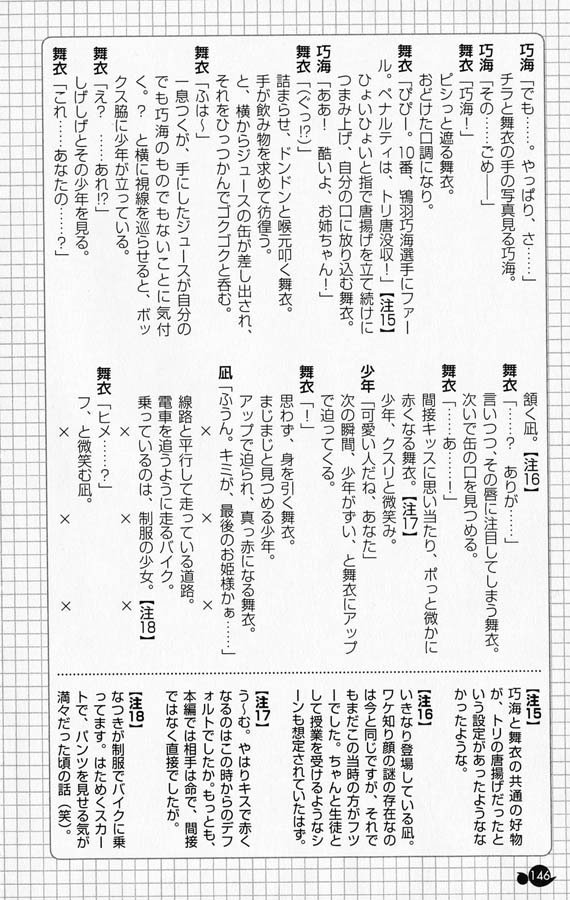 巧海「でも……。やっぱり、さ……」
チラと舞衣の手の写真見る巧海。
巧海「その……ごめ――」
舞衣「巧海！」
ピシっと遮る舞衣。
おどけた口調になり。
舞衣「ぴぴー。10番、鴇羽巧海選手にファー
ル。ペナルティは、トリ唐没収！」【注15】
ひょいひょいと指で唐揚げを立て続けに
つまみ上げ、自分の口に放り込む舞衣。
巧海「ああ！　酷いよ、お姉ちゃん！」
舞衣「（ぐっ!?）」
詰まらせ、ドンドンと喉元叩く舞衣。
手が飲み物を求めて彷徨う。
と、横からジュースの缶が差し出され、
それをひっつかんでゴクゴクと呑む。
舞衣「ふは〜」
一息つくが、手にしたジュースが自分の
でも巧海のものでもないことに気付
く。？　と横に視線を巡らせると、ボッ
クス脇に少年が立っている。
舞衣「え？　……あれ!?」
しげしげとその少年を見る。
舞衣「これ……あなたの……？」
頷く凪。【注16】
舞衣「……？　ありが……」
言いつつ、その唇に注目してしまう舞衣。
次いで缶の口を見つめる。
舞衣「……あ……！」
間接キッスに思い当たり、ポっと微かに
赤くなる舞衣。【注17】
少年、クスリと微笑み。
少年「可愛い人だね、あなた」
次の瞬間、少年がずい、と舞衣にアップ
で迫ってくる。
舞衣「！」
思わず、身を引く舞衣。
まじまじと見つめる少年。
アップで迫られ、真っ赤になる舞衣。
凪「ふうん。キミが、最後のお姫様かぁ……」
×　×　×
線路と平行して走っている道路。
電車を追うように走るバイク。
乗っているのは、制服の少女。【注18】
×　×　×
舞衣「ヒメ……？」
フ、と微笑む凪。
×　×　×
【注15】
巧海と舞衣の共通の好物
が、トリの唐揚げだったと
いう設定があったような
かったような。
【注16】
いきなり登場している凪。
ワケ知り顔の謎の存在なの
は今と同じですが、それで
もまだこの当時の方がフツ
ーでした。ちゃんと生徒と
して授業を受けるようなシ
ーンも想定されていたはず。
【注17】
う〜む。やはりキスで赤く
なるのはこの時からのデフ
ォルトでしたか。もっとも、
本編では相手は命で、間接
ではなく直接でしたが。
【注18】
なつきが制服でバイクに乗
ってます。はためくスカー
トで、パンツを見せる気が
満々だった頃の話（笑）。
146